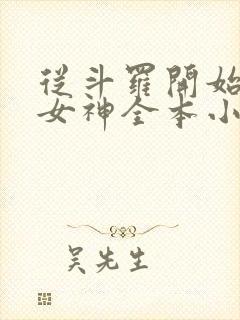 從斗羅開始
女神全本小
吴先生